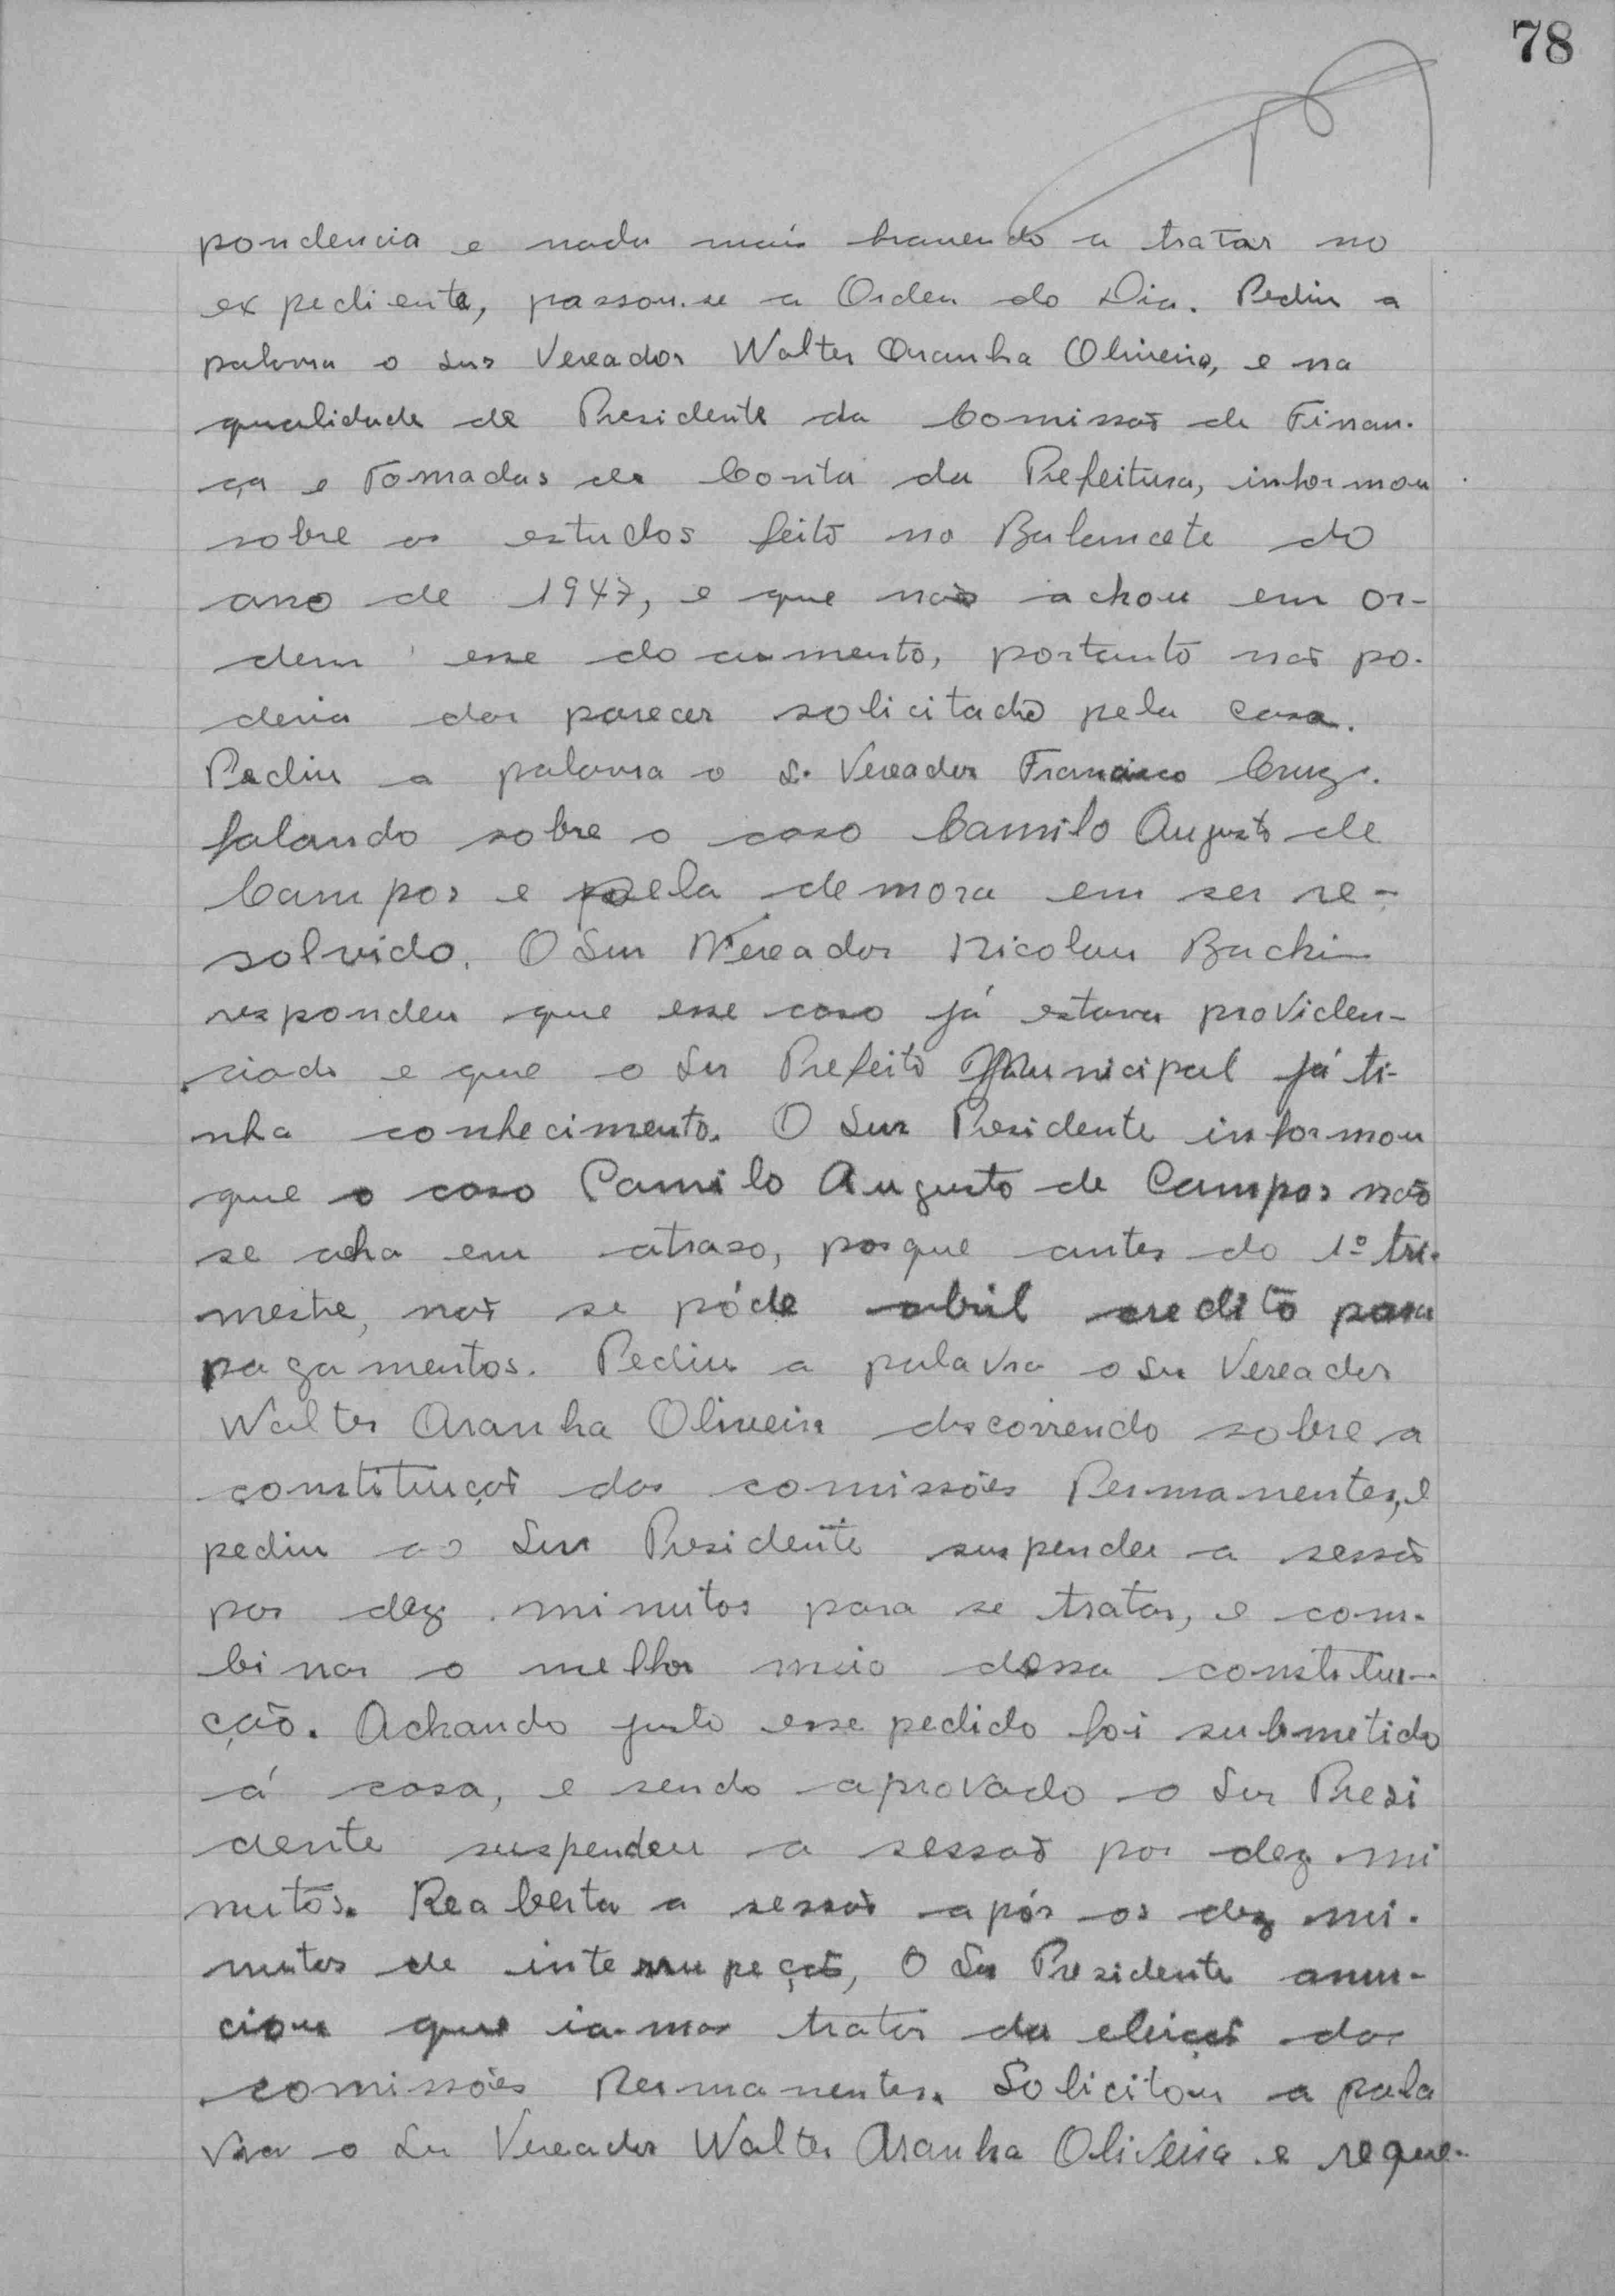 78
pondencia e nada mais havendo a tratar no
expediente, passou-se a Ordem do Dia. Pediu a
palavra o Snr Vereador Walter Aranha Oliveira, e na
qualidade de Presidente da Comissão de Finan-
ça e Tomadas de Conta da Prefeitura, informou
sobre os estudos feito no Balancete do
ano de 1947, e que não achou em or-
dem esse documento, portanto não po-
deria dar parecer solicitado pela casa.
Pediu a palavra o Sr. Vereador Francisco Cruz.
falando sobre o caso Camilo Augusto de
Campos e pela demora em ser re-
solvido. O Snr Vereador Nicolau Buchi
respondeu que esse caso já estava providen-
ciado e que o Snr Prefeito Municipal já ti-
nha conhecimento. O Snr Presidente informou
que o caso Camilo Augusto de Campos não
se acha em atraso, porque antes do 1º tri-
mestre, não se póde abril credito para
pagamentos. Pediu a palavra o Snr Vereador
Walter Aranha Oliveira discorrendo sobre a
constituição das comissões Permanentes, e
pediu ao Snr Presidente suspender a sessão
por dez minutos para se tratar, e com-
binar o melhor meio dessa constitui-
ção. Achando justo esse pedido foi submetido
á casa, e sendo aprovado o Snr Presi
dente suspendeu a sessão por dez mi
nutos. Reaberta a sessão após os dez mi-
nutos de interrupeção, O Snr Presidente anun-
ciou que ia-mos tratar da eleição das
comissões Permanentes. Solicitou a pala
vra o Snr Vereador Walter Aranha Oliveira e reque-